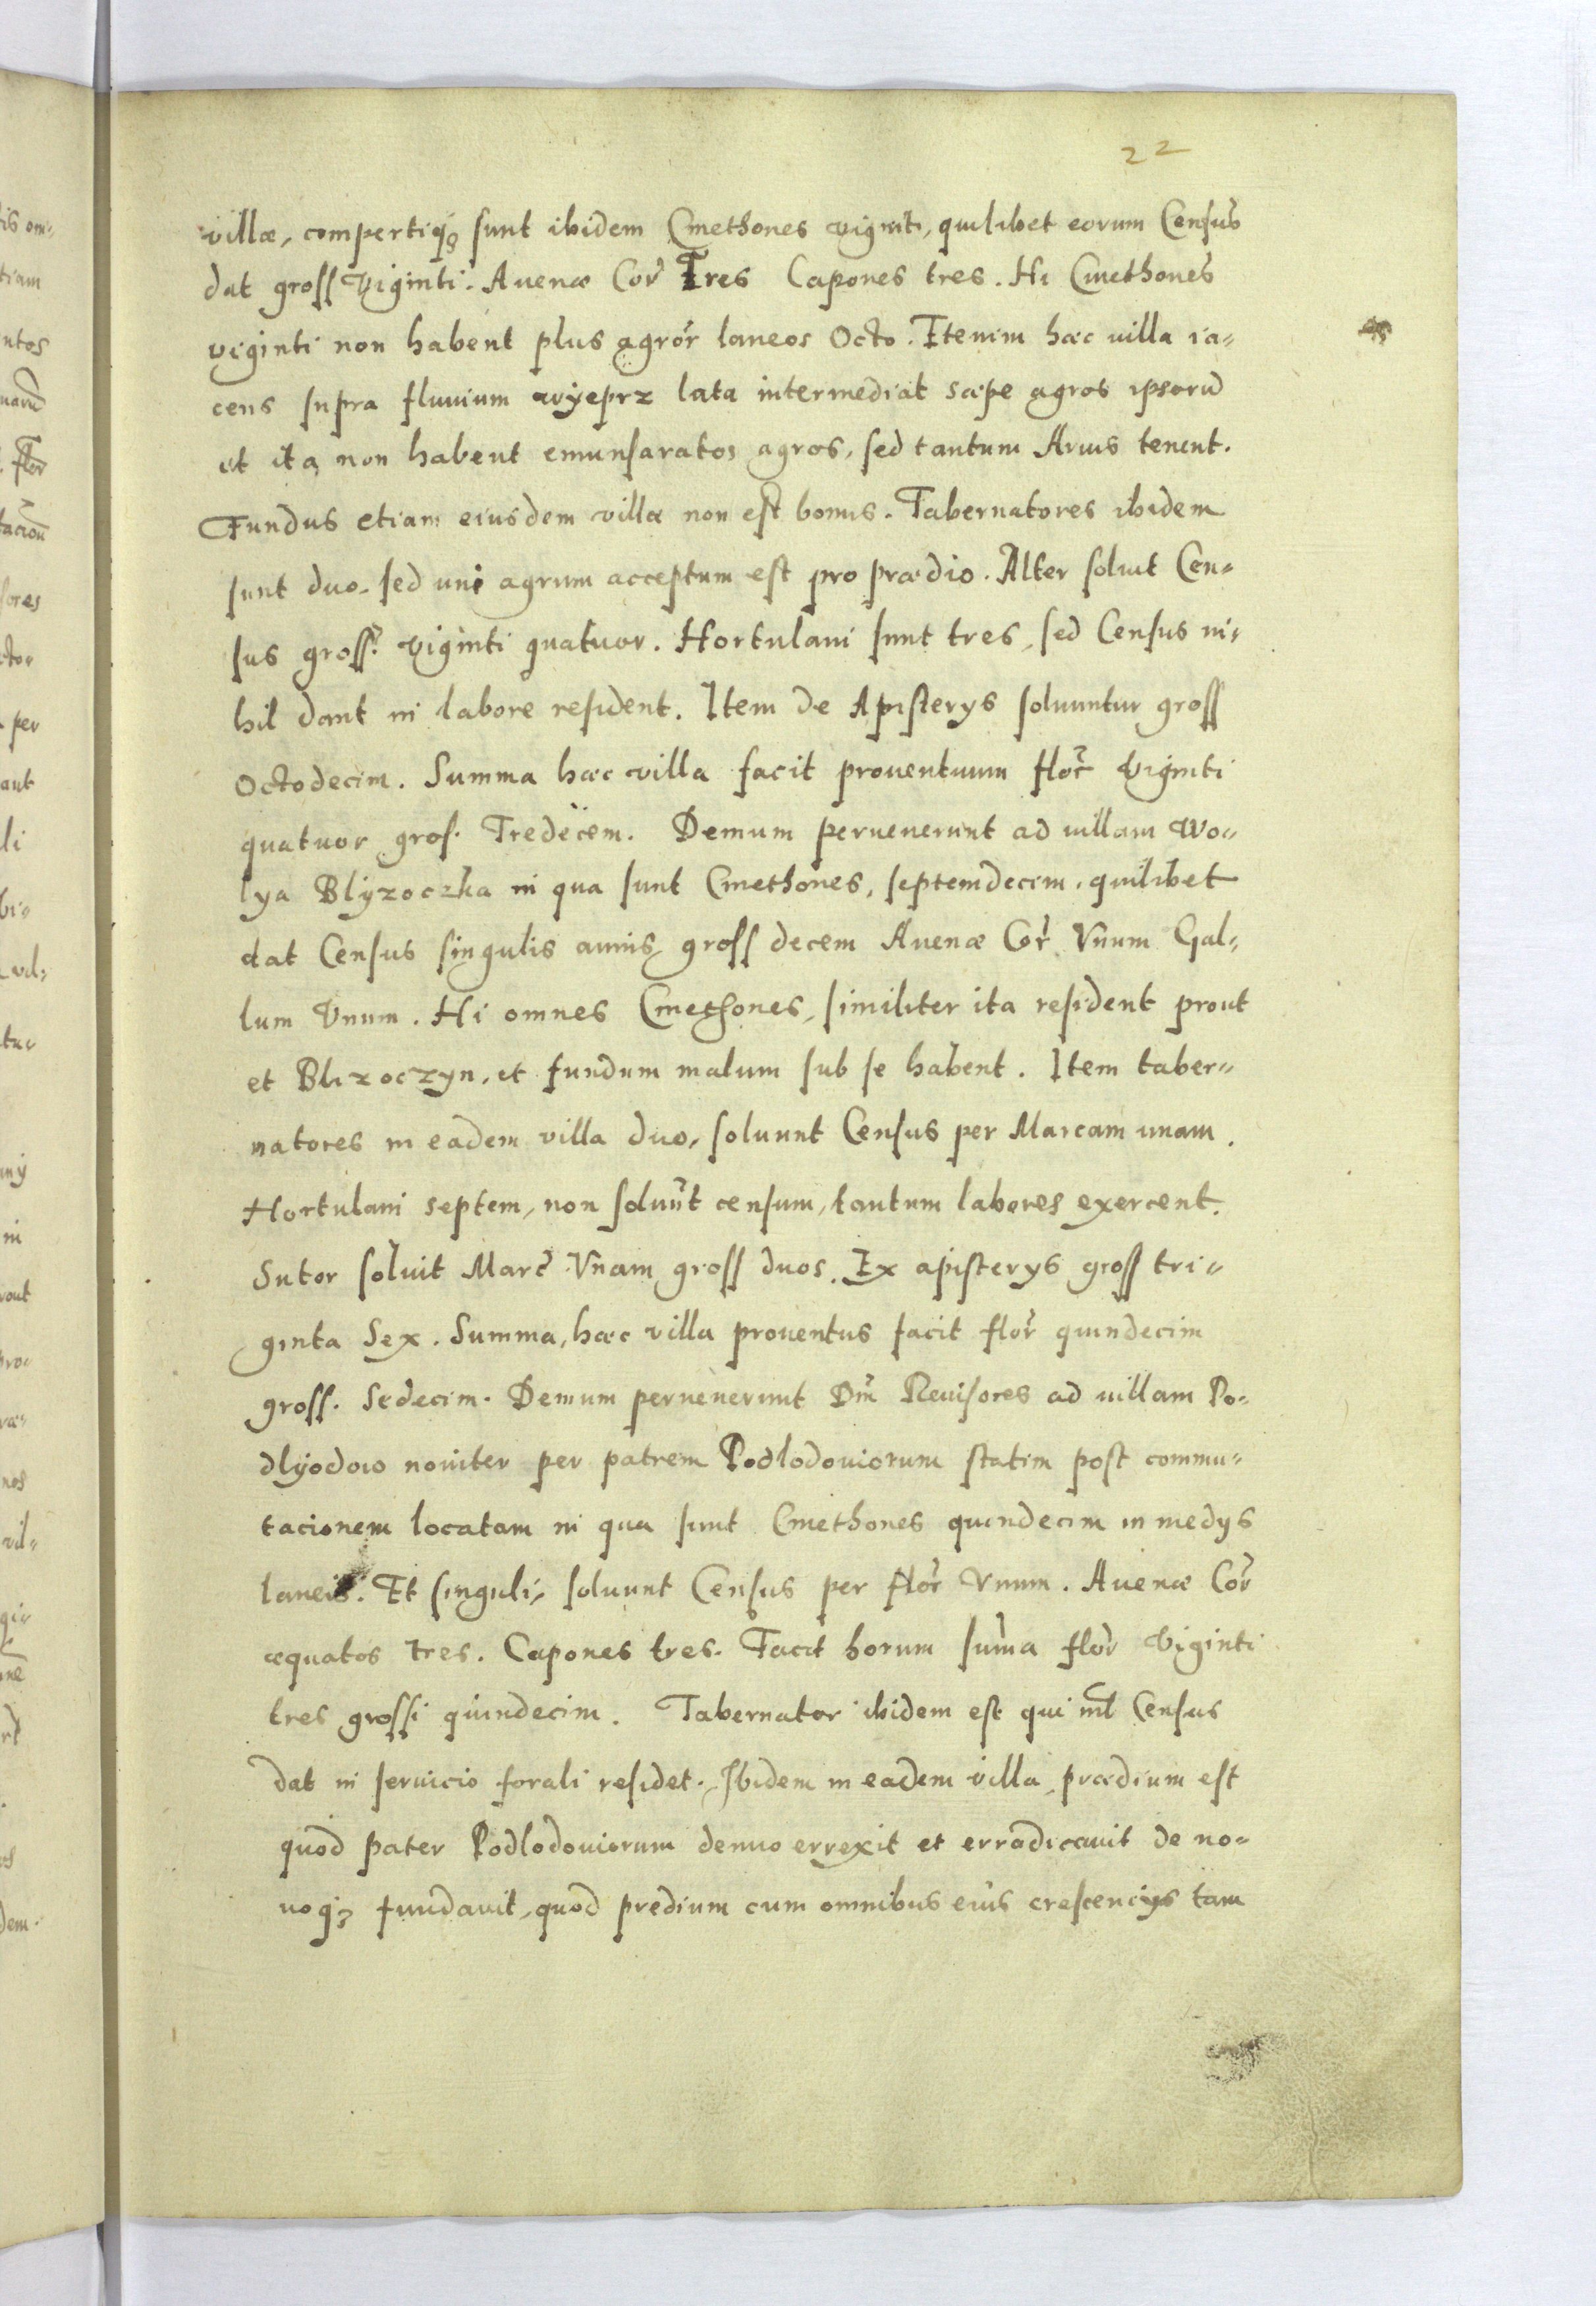 22
villæ, compertiq₃ sunt ibidem Cmethones viginti, quilibet eorum Census
dat gross Viginti. Auenæ Cor̃ Tres Capones tres. Hi Cmethones
viginti non habent plus agror̃ laneos Octo. Etenim hæc villa ia-
cens supra fluuium wÿeprz lata intermediat sæpe agros ipsorũ
et ita non habent emensuratos agros, sed tantum tenent.
Fundus etiam eiusdem villæ non est bonus. Tabernatores ibidem
sunt duo, sed uni agrum acceptum est pro prædio. Alter soluit Cen-
sus gross. viginti quatuor. Hortulani sunt tres, sed Census ni-
hil dant in labore resident. Item de Apisterys soluuntur gross
Octodecim. Summa hæc villa facit prouentuum flor̃ Viginti
quatuor gros. Tredecem. Demum peruenerunt ad uillam Wo-
lya Blÿzoczka in qua sunt Cmethones, septemdecim, quilibet
dat Census singulis annis gross decem Auenæ Cor̃ Vnum Gal-
lum Vnum. Hi omnes Cmethones, similiter ita resident prout
et Blizoczyn, et fundum malum sub se habent. Item taber-
natores in eadem villa duo, soluunt Census per Marcam unam.
Hortulani septem, non soluũt censum, tantum labores exercent.
Sutor soluit Marc̃ Vnam gross duos. Ex apisterys gross tri-
ginta Sex. Summa, hæc villa prouentus facit flor̃ quindecim
gross. Sedecim. Demum peruenerunt Dñi Reuisores ad uillam Po-
dlÿodow nouiter per patrem Podlodouiorum statim post commu-
tacionem locatam in qua sunt Cmethones quindecim in medys
laneis. Et singuli, soluunt Census per flor̃ Vnum. Auenæ Cor̃
æquatos tres. Capones tres. Facit horum sum̃a flor̃ Viginti
tres grossi quindecim. Tabernator ibidem est qui nĩl Census
dat in seruicio forali residet. Ibidem in eadem villa prædium est
quod pater Podlodouiorum denuo errexit et erradicauit de no-
uoq₃ fundauit, quod predium cum omnibus eius crescencÿs tam